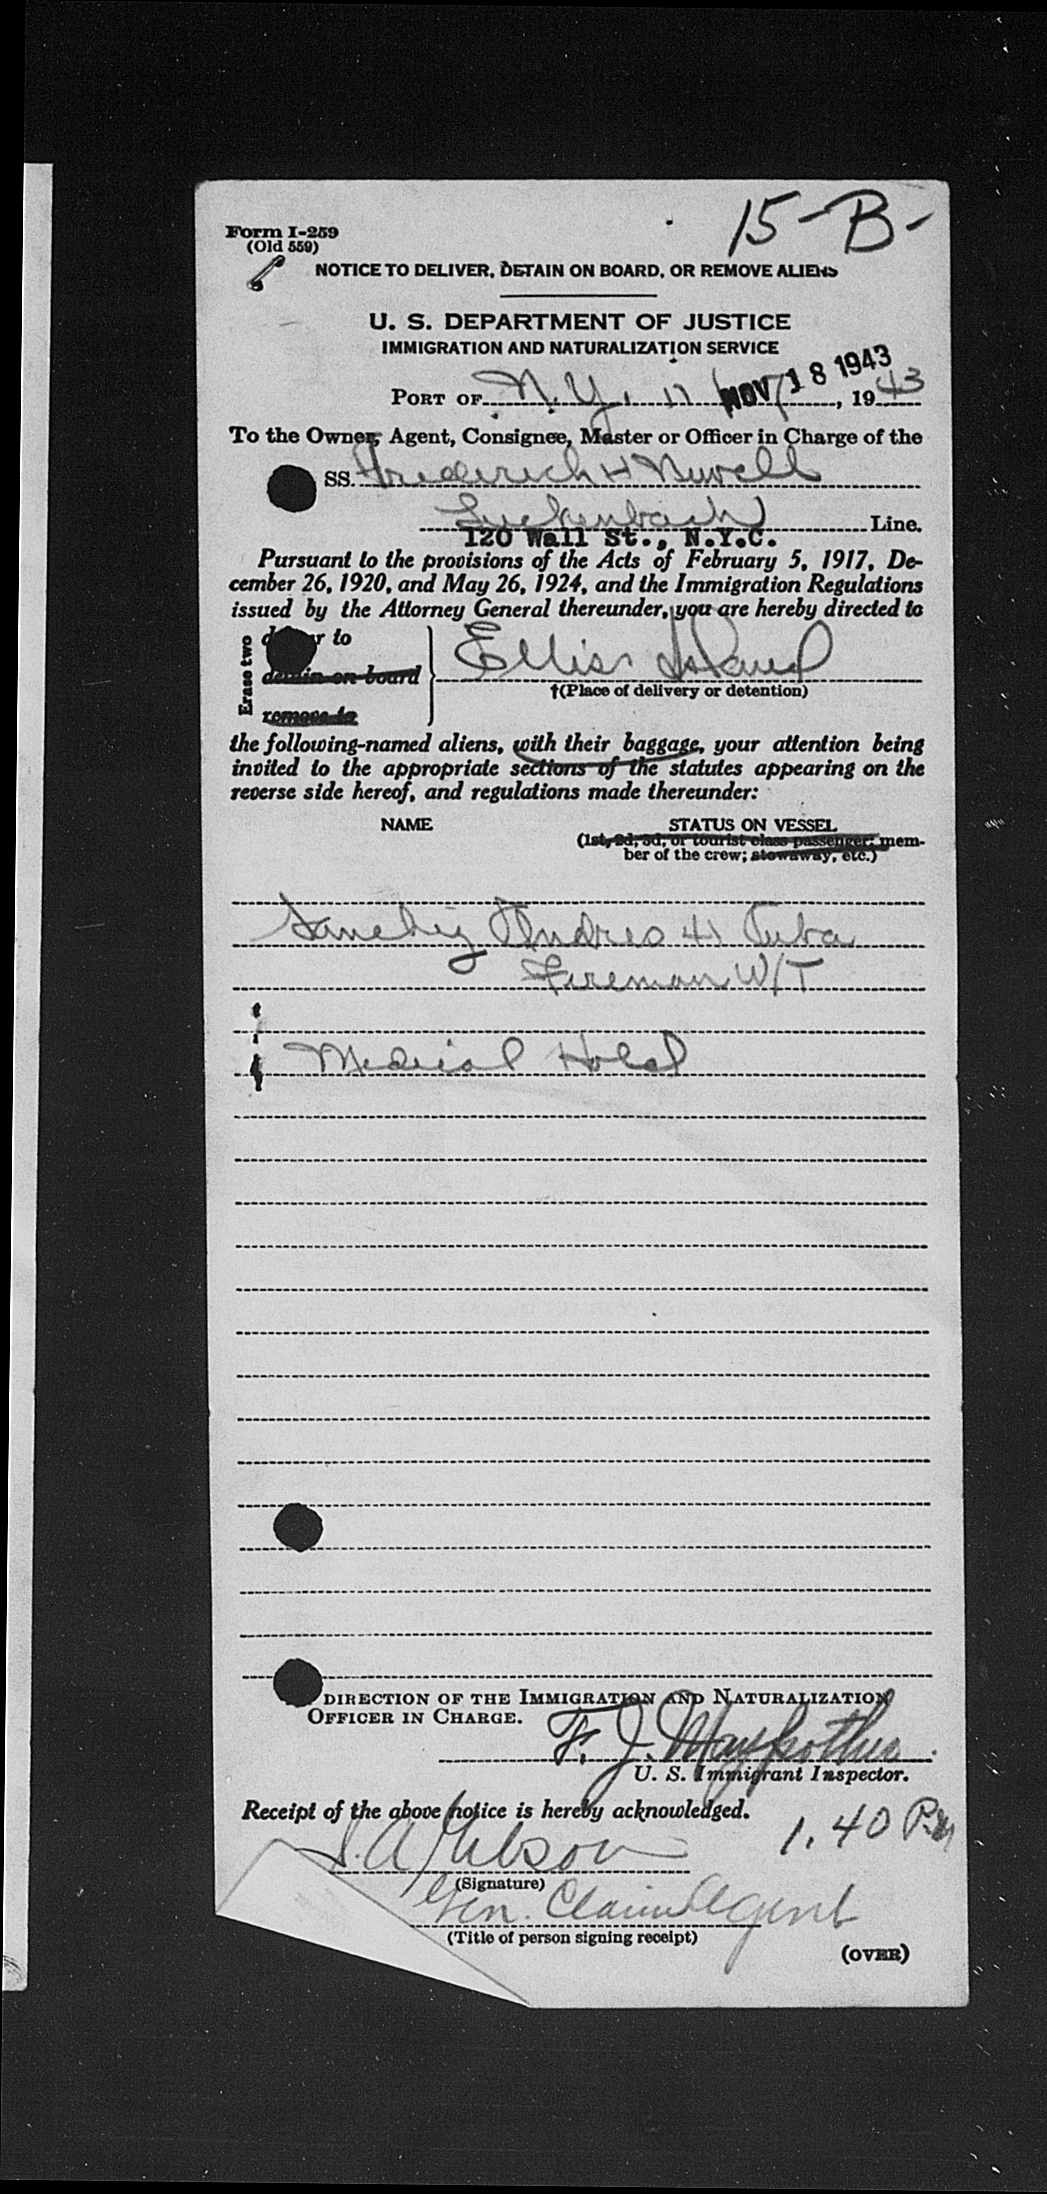 15-B-
Form I-259
(Old 559)
NOTICE TO DELIVER, DETAIN ON BOARD, OR REMOVE ALIENS
U. S. DEPARTMENT OF JUSTICE
IMMIGRATION AND NATURALIZATION SERVICE
NOV 18 1943
PORT OF N.Y. 11 , 1943
To the Owner, Agent, Consignee, Master or Officer in Charge of the
SS. Frederick H Newell
Luckenbach Line.
120 Wall St., N.Y.C.
Pursuant to the provisions of the Acts of February 5, 1917, De-
cember 26, 1920, and May 26, 1924, and the Immigration Regulations
issued by the Attorney General thereunder, you are hereby directed to
Erase two
to
detain on board
remove to
Ellis Island
†(Place of delivery or detention)
the following-named aliens, with their baggage, your attention being
invited to the appropriate sections of the statutes appearing on the
reverse side hereof, and regulations made thereunder:
NAME STATUS ON VESSEL
(1st, 2d, 3d, or tourist class passenger; mem-
ber of the crew; stowaway, etc.)
Sanchez Andres 41 Cuba
Fireman W/T
Medical Hold
DIRECTION OF THE IMMIGRATION AND NATURALIZATION
OFFICER IN CHARGE.
F. J.
U. S. Immigrant Inspector.
Receipt of the above notice is hereby acknowledged.
1.40 P.M
(Signature)
Gen. Claim Agent
(Title of person signing receipt)
(OVER)